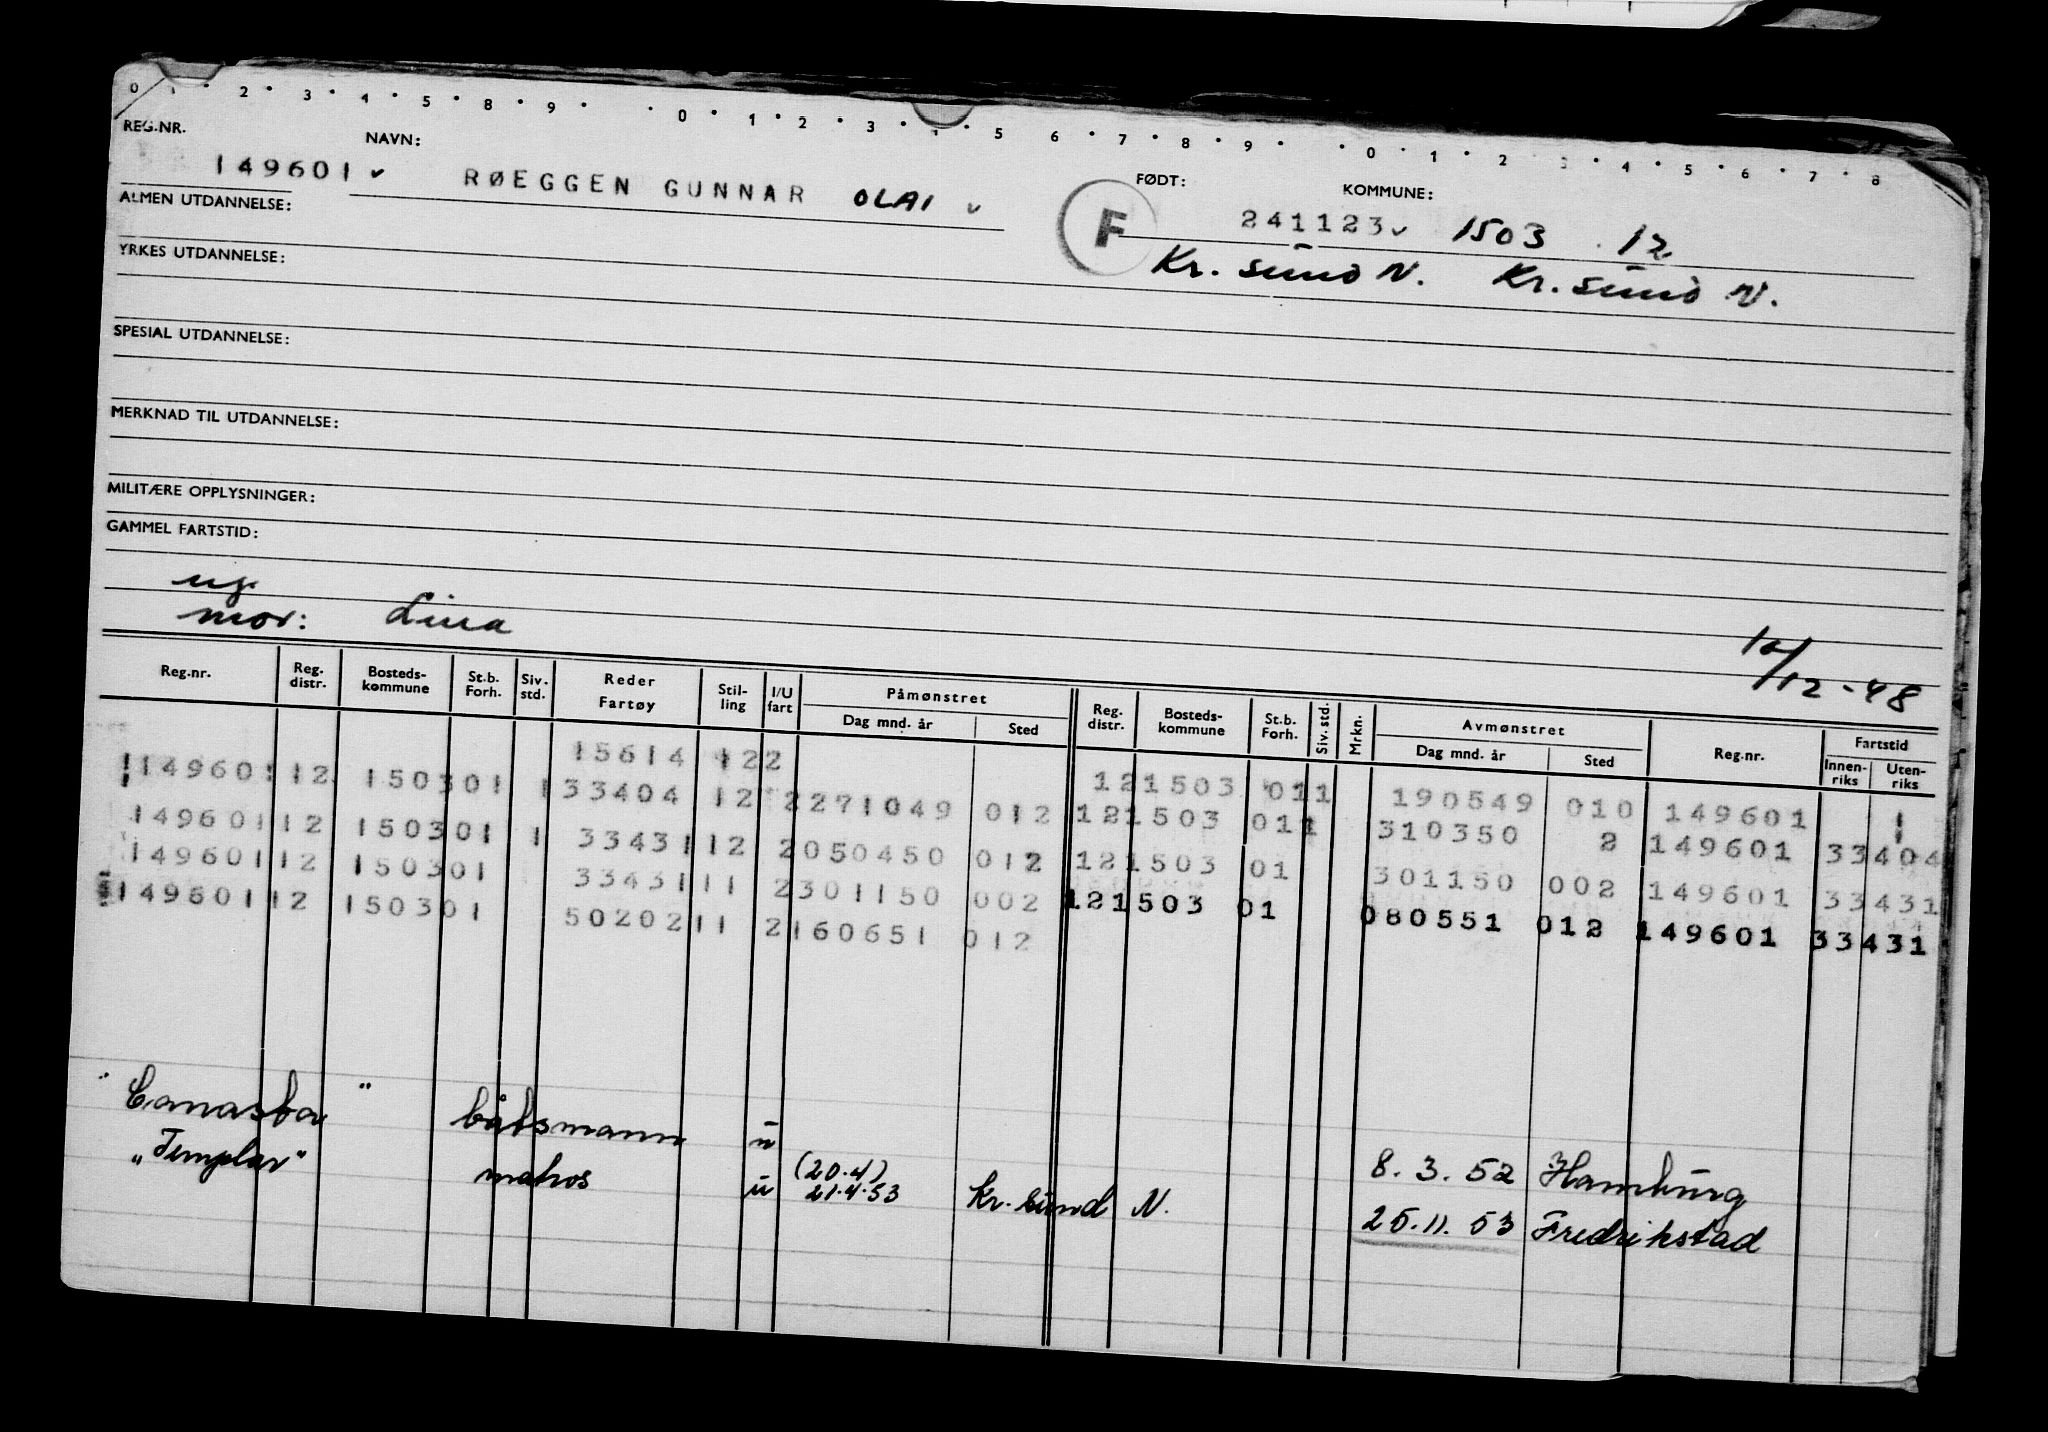 0 1 2 3 4 5 8 9 0 1 2 3 4 5 6 7 8 9 0 1 2 3 4 5 6 7 8
REG.NR. NAVN: FØDT: KOMMUNE:
149601 RØEGGEN GUNNAR OLAI F 241123 1503 12
ALMEN UTDANNELSE: Kr. sund N. Kr. sund N.
YRKES UTDANNELSE:
SPESIAL UTDANNELSE:
MERKNAD TIL UTDANNELSE:
MILITÆRE OPPLYSNINGER:
GAMMEL FARTSTID:
ug.
mor: Lina
12/12-48
Reg.nr. Reg. distr. Bosteds-kommune St.b. Forh. Siv. std. Reder Fartøy Stil-ling I/U fart Påmønstret Dag mnd. år Sted Reg. distr. Bosteds-kommune St.b. Forh. Siv. std. Mrkn. Avmønstret Dag mnd. år Sted Reg.nr. Fartstid Innen-riks Uten-riks
15614 122 121503 011 190549 010 149601
149601 12 150301 1 33404 12 2 271049 012 121503 011 310350 2 149601 33404
149601 12 150301 1 33431 12 2 050450 012 121503 01 301150 002 149601 33431
149601 12 150301 33431 11 2 301150 002 121503 01 080551 012 149601 33431
149601 12 150301 50202 11 2 160651 012
" " båtsmann u 8.3.52 Hamburg
"Templar" matros u (20.4) 21.4.53 Kr. sund N. 25.11.53 Fredrikstad